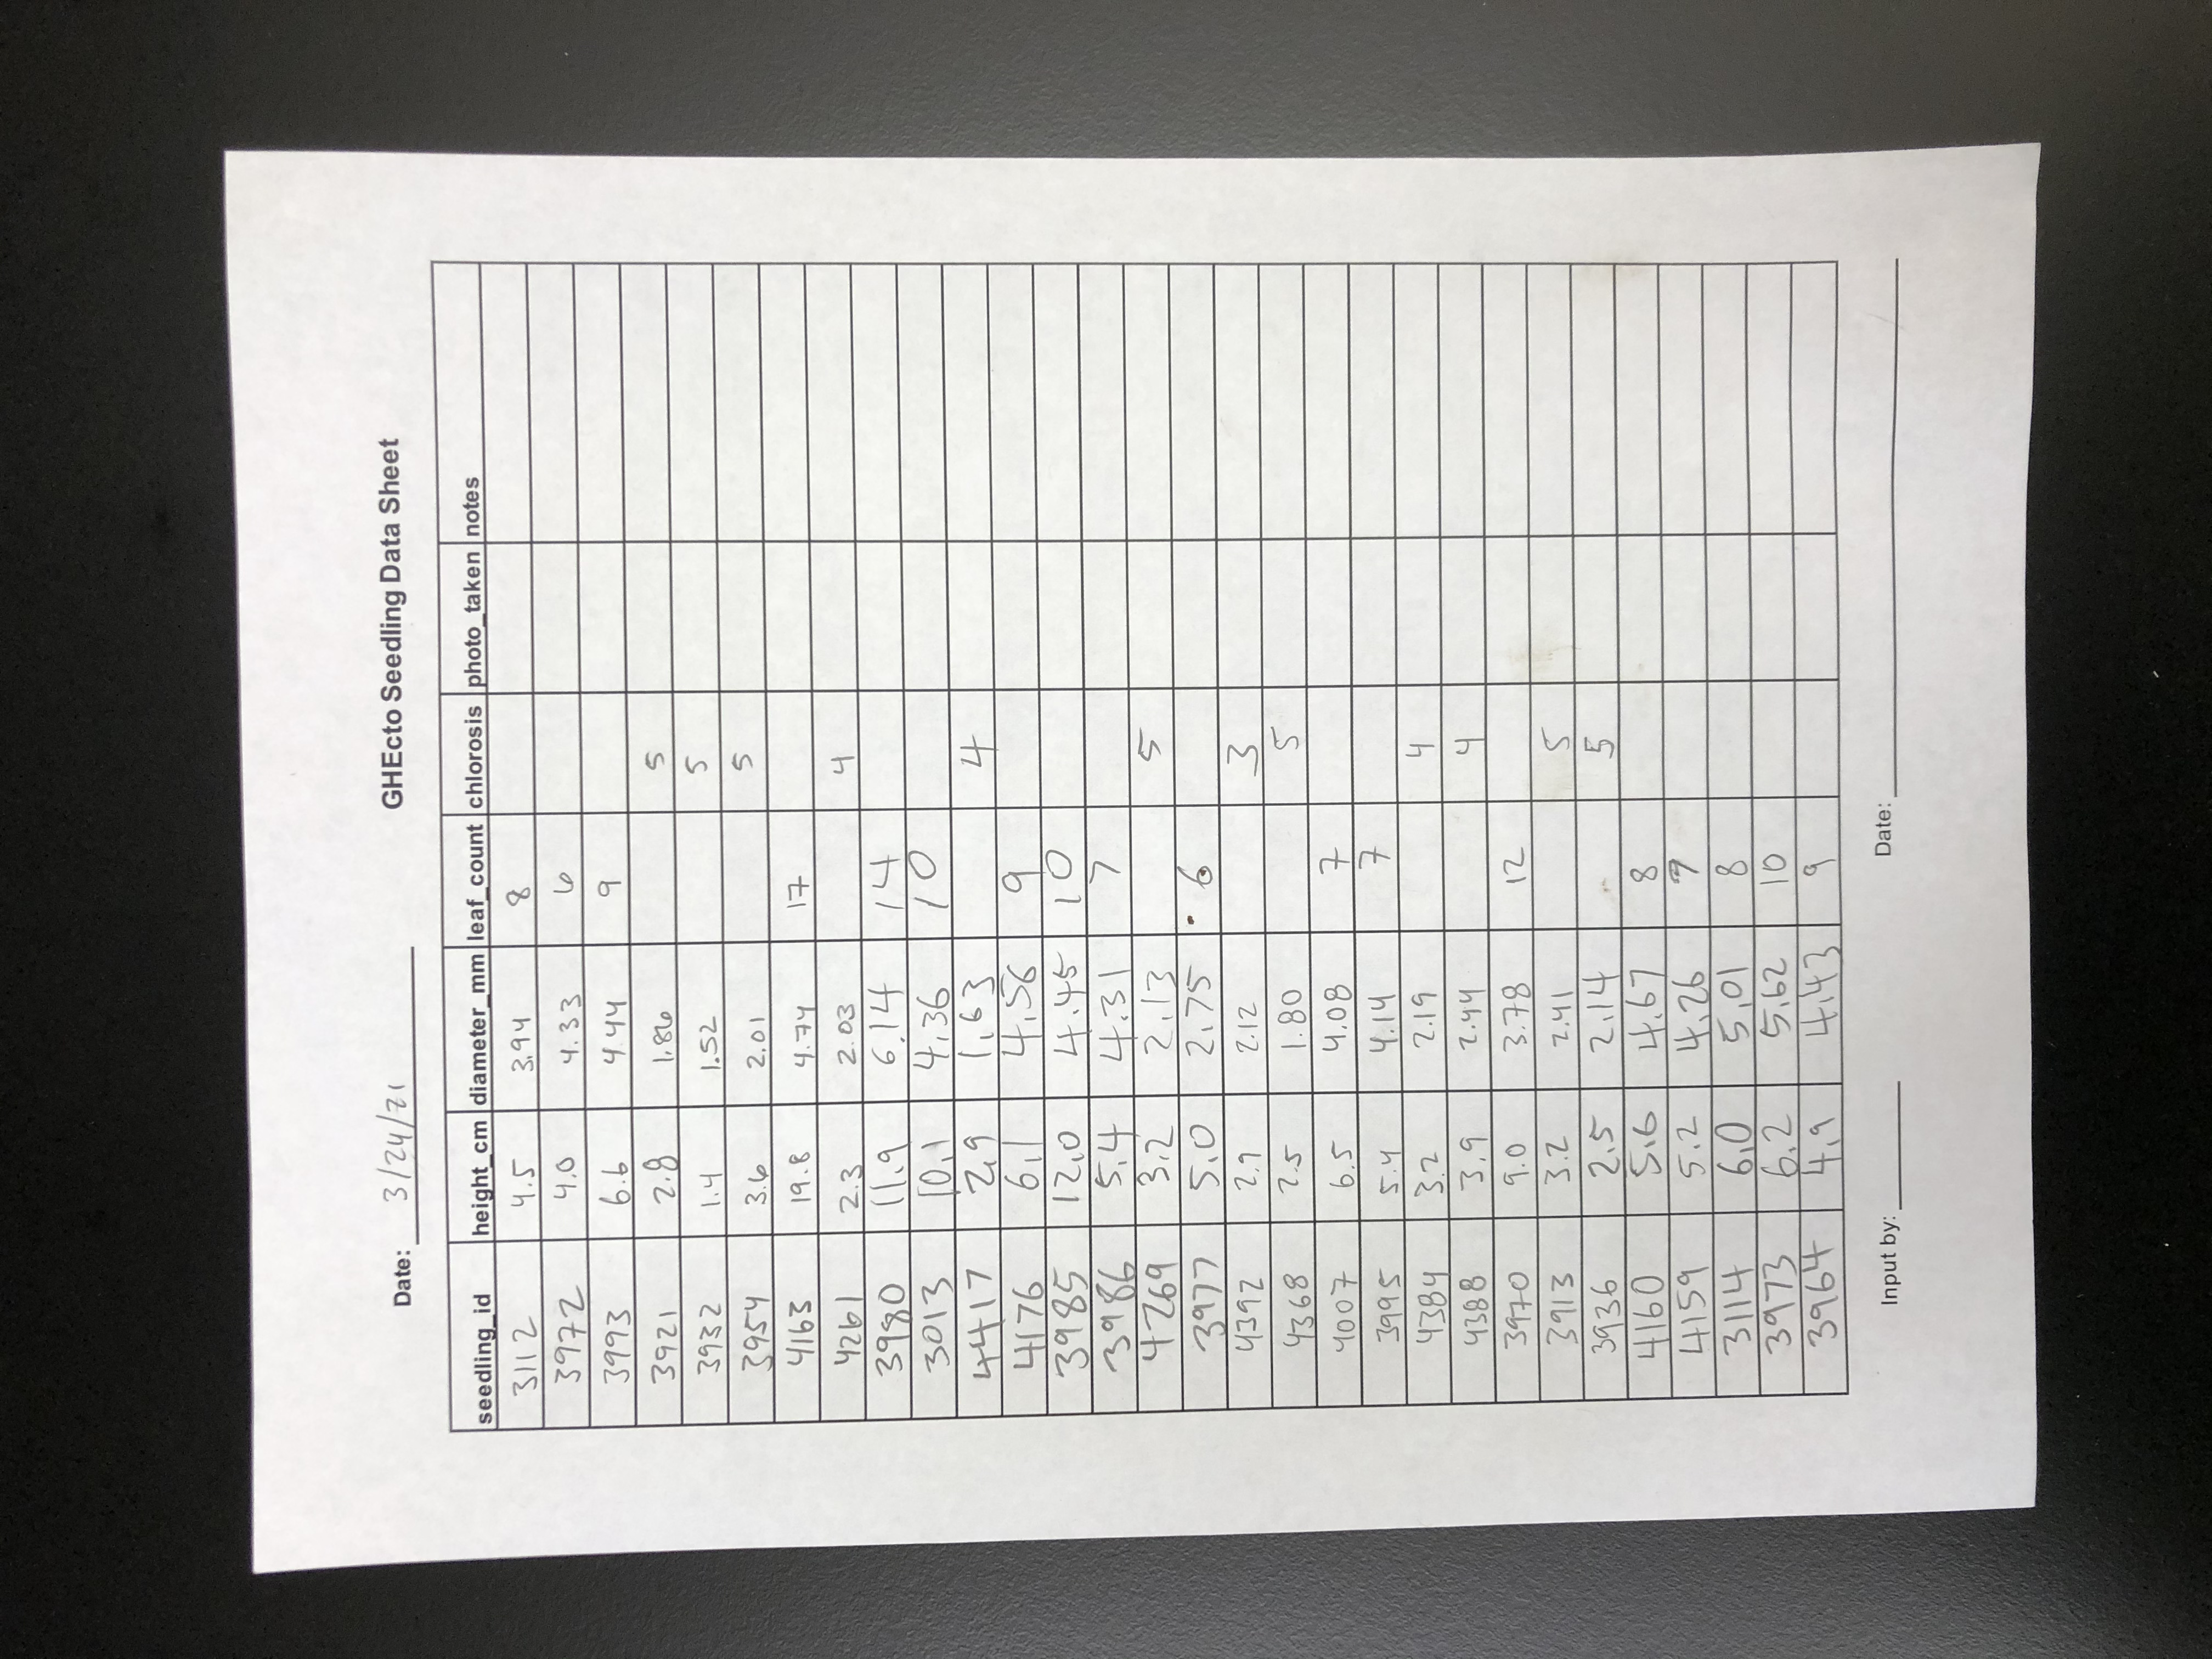 Date: 3/24/21 GHEcto Seedling Data Sheet
seedling_id height_cm diameter_mm leaf_count chlorosis photo_taken notes
3112 4.5 3.94 8
3972 4.0 4.33 6
3993 6.6 4.44 9
3921 2.8 1.86 5
3932 1.4 1.52 5
3954 3.6 2.01 5
4163 19.8 4.74 17
4261 2.3 2.03 4
3980 11.9 6.14 14
3013 10.1 4.36 10
4417 2.9 1.63 4
4176 6.1 4.56 9
3985 12.0 4.45 10
3986 5.4 4.31 7
4269 3.2 2.13 5
3977 5.0 2.75 6
4392 2.9 2.12 3
4368 2.5 1.80 5
4007 6.5 4.08 7
3995 5.4 4.14 7
4384 3.2 2.19 4
4388 3.9 2.44 4
3970 9.0 3.78 12
3913 3.2 2.41 5
3936 2.5 2.14 5
4160 5.6 4.67 8
4159 5.2 4.26
3114 6.0 5.01 8
3973 6.2 5.62 10
3964 4.9 4.43 9
Input by: Date: